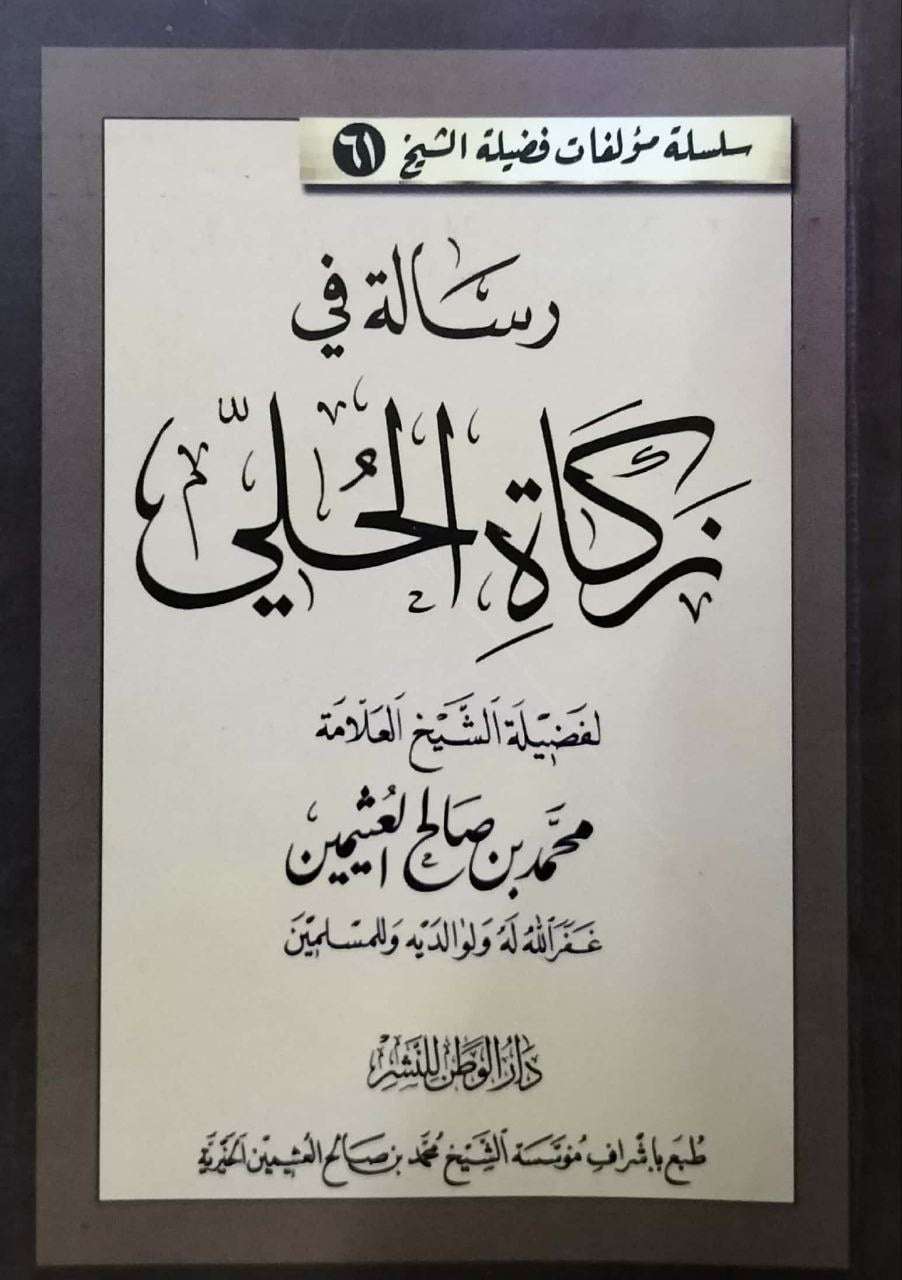 سلسلة مؤلفات فضيلة الشيخ ٦١
رسالة في
زكاةِ الحُليّ
لفَضيْلَة الشَّيْخ العَلّامَة
محمَّد بن صَالح العُثيمين
غفَرَ اللهُ لَهُ وَلوالدَيْه وَللمُسْلميْنَ
دَارُ الوَطَن لِلنَّشِر
طُبعَ بإشْرافِ مُؤسَّسَة الشَّيْخ مُحَّمد بن صَالح العثيمين الخَيْريَّة